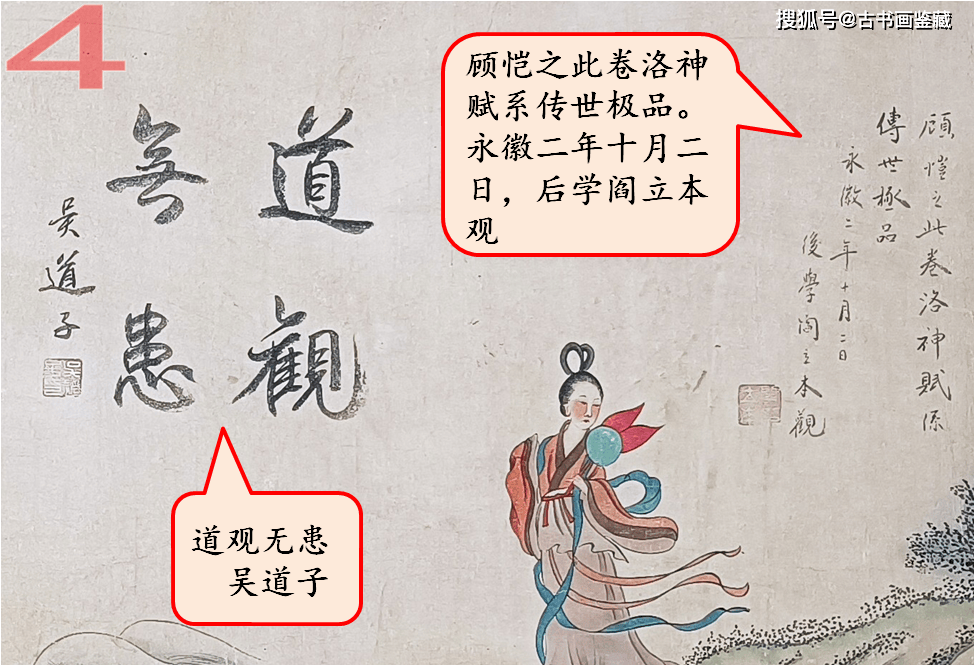 4
搜狐号@古书画鉴藏
顾恺之此卷洛神
赋系传世极品。
永徽二年十月二
日，后学阎立本
观
顧愷之此卷洛神賦係
傳世極品
永徽二年十月二日
後學阎立本觀
道觀
無患
吴道子
道观无患
吴道子